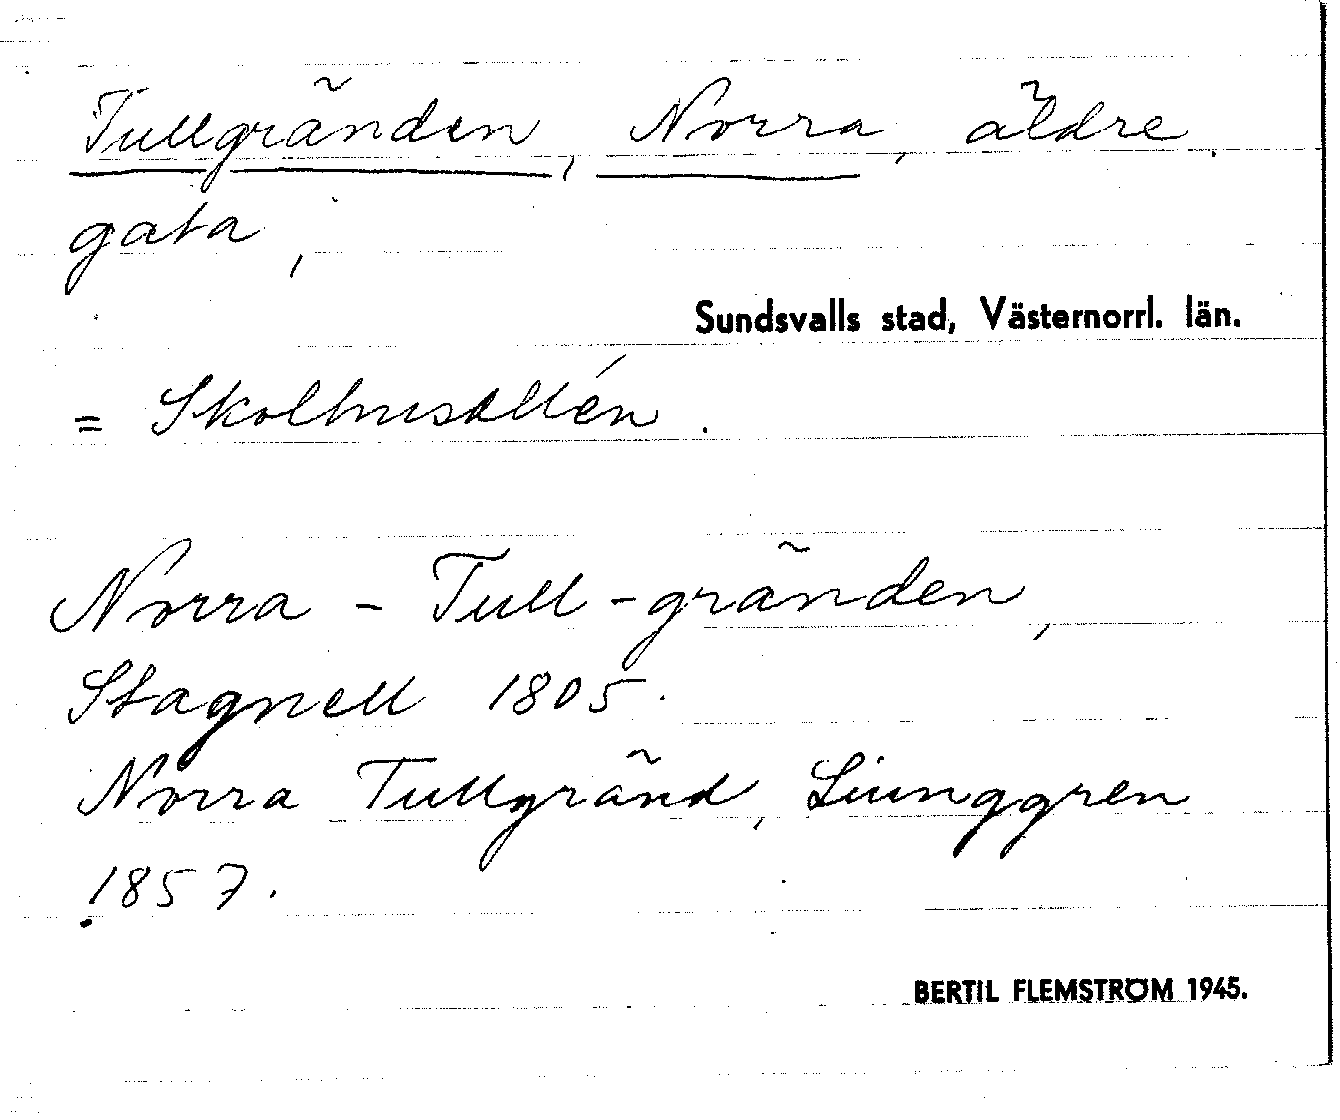 Tullgränden, Norra, äldre
gata,
Sundsvalls stad, Västernorrl. län.
= Skolhusallén.
Norra - Tull - gränden,
Stagnell 1805.
Norra Tullgränd, Liunggren
1857.
BERTIL FLEMSTRÖM 1945.